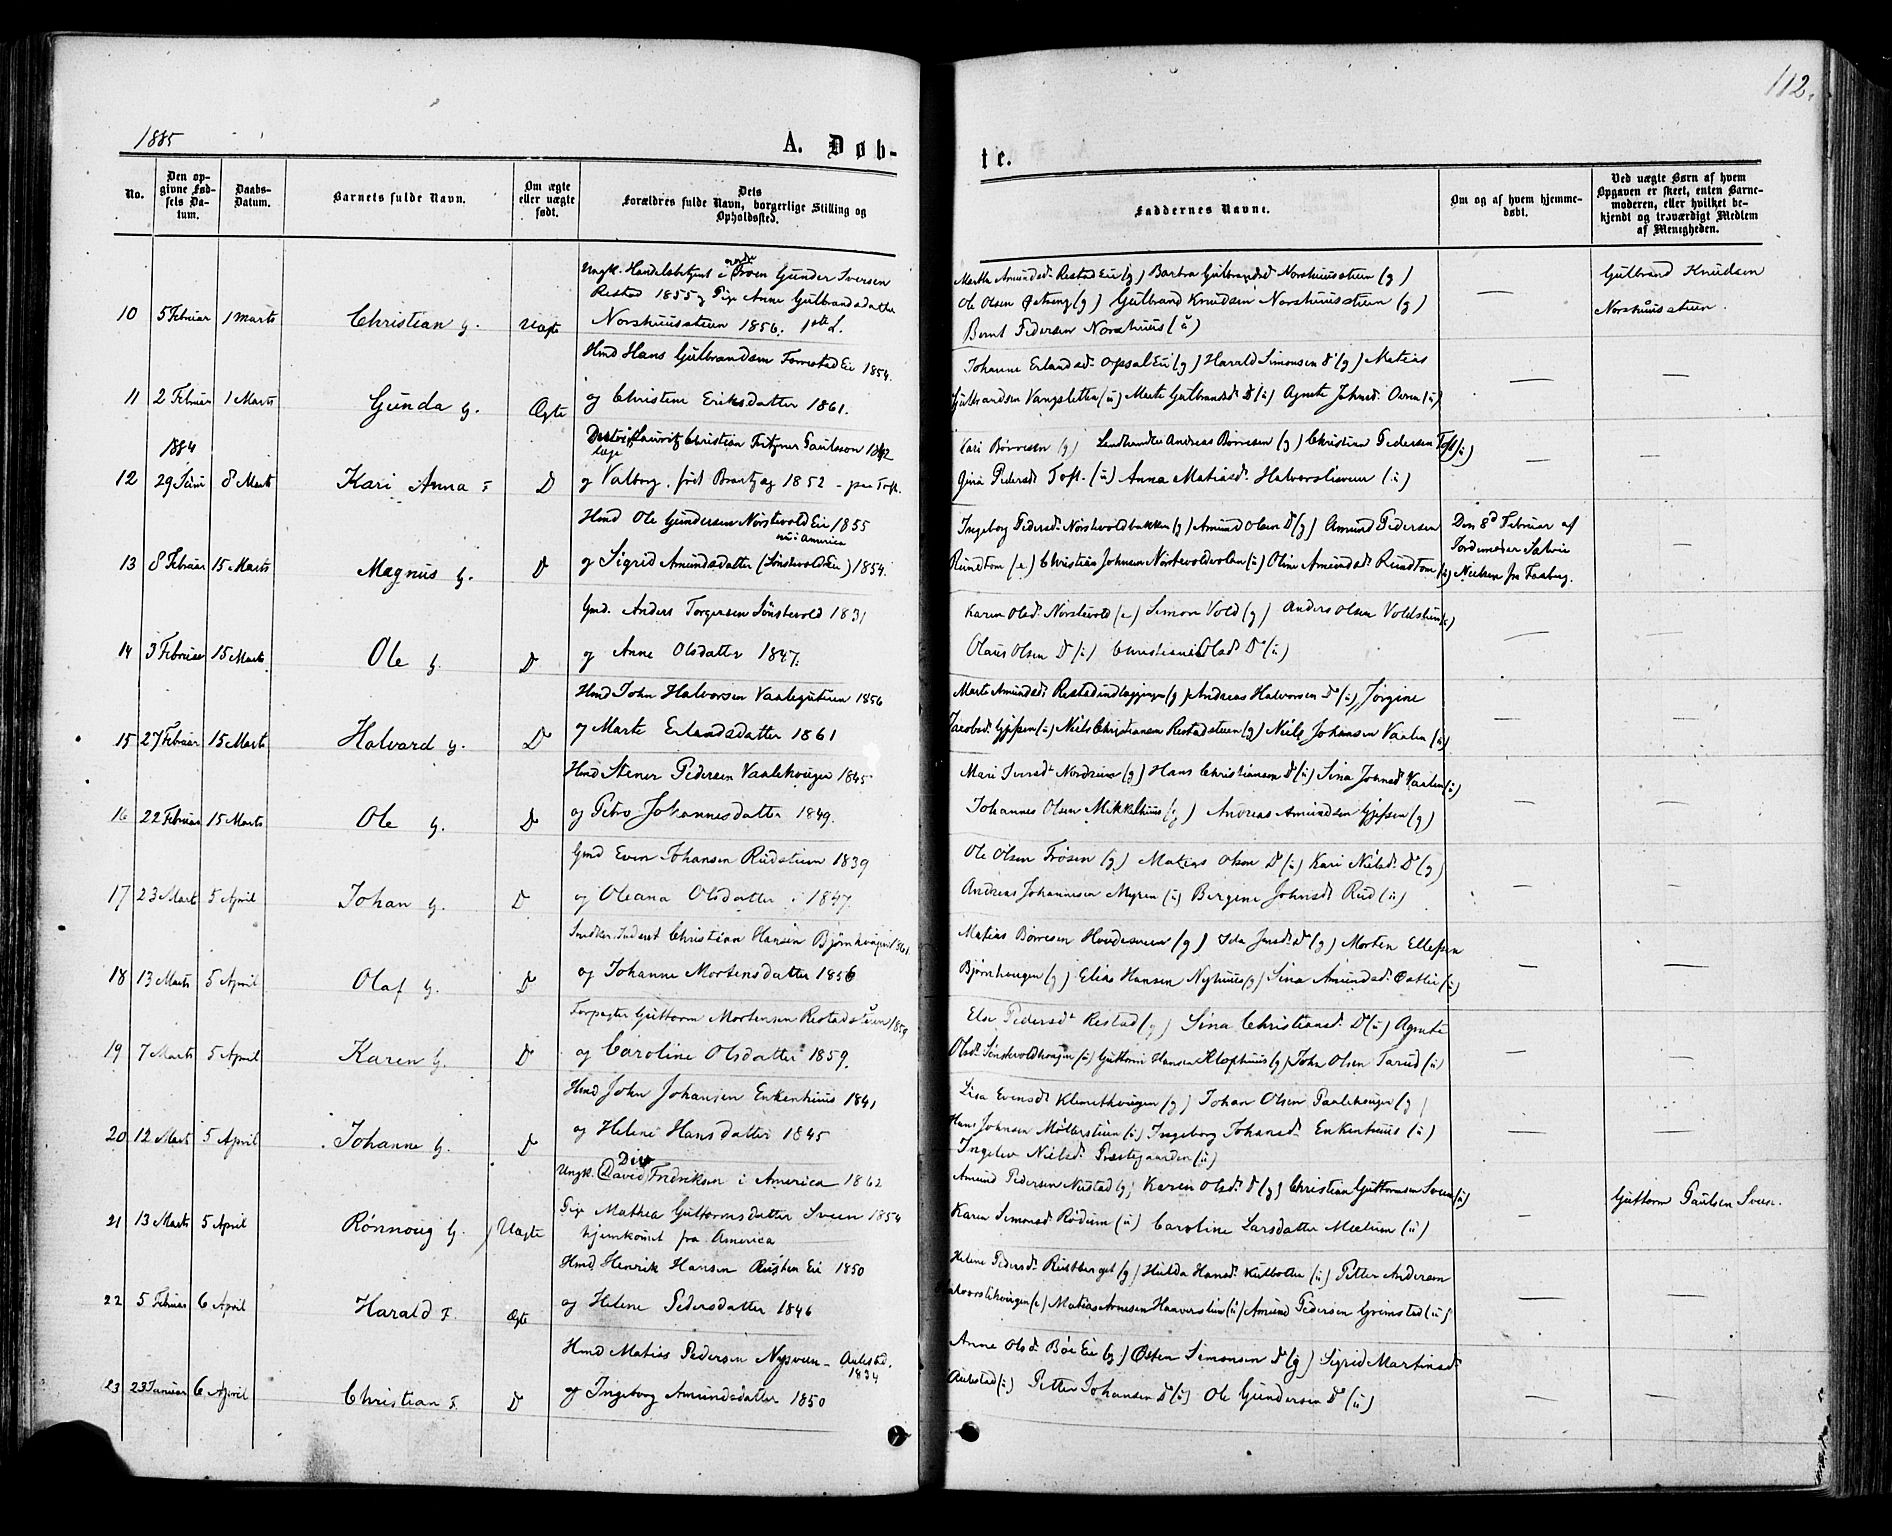 112.
1885
A. Døb-
te.
No.
Den op-
givne Fød-
sels Da-
tum.
Daabs-
Datum.
Barnets fulde Navn.
Om ægte
eller uægte
født.
Dets
Forældres fulde Navn, borgerlige Stilling og
Opholdssted.
Faddernes Navne.
Om og af hvem hjemme-
døbt.
Ved uægte Børn af hvem
Opgaven er skeet, enten Barne-
moderen, eller hvilket be-
kjendt og troværdigt Medlem
af Menigheden.
Ungk. Handelsbetjent i Gunder Iversen
Restad 1855 og Pige Anne Gulbrandsdatter
10 5 Februar 1 Marts Christian g. Uægte Norshuusstuen 1856. 1ste L.
Marthe Amundsd. Restad Eie (g) Barbra Gulbrandsd. Norshuusstuen (g)
Ole Olsen (g) Gulbrand Knudsen Norshuusstuen (g)
Bernt Pedersen Norshuus (u)
—
Gulbrand Knudsen
Norshuusstuen.
Hmd Hans Gulbrandsen Eie 1854.
11 2 Februar 1 Marts Gunda g. Ægte og Christine Eriksdatter 1861.
Johanne Erlandsd. Opsal Eie (g) Harald Simonsen D (g) Matias
Gulbrandsen Vangsletten (u) Marte Gulbrandsd. D (u) Agnete Johnsd. (u)
— —
1884
12 29 Juni 8 Marts Kari Anna F. D
Lauritz Christian Paulsson 1842
og Valborg, født 1852 - paa Toft.
Kari Børresen (g) Lendmand Andreas Børresen (g) Christian Pedersen Toft (u)
Gina Pedersd. Toft. (u) Anna Matiasd. Halvorslieveien (u)
— —
Hmd Ole Gundersen Nørstevold Eie 1855
nu i America
13 8 Februar 15 Marts Magnus g. D og Sigrid Amundsdatter (Sønstevold Eie) 1854.
Ingeborg Pedersd. Nørstevoldbakken (g) Amund Olsen D (g) Amund Pedersen
Rundtom (e) Christian Johnsen Nørstevoldvolden (u) Oline Amundsd. Rundtom (u)
Den 8d Februar af
Jordemoder
Nielsen fra Faaberg.
—
Gmd. Anders Torgersen Sønstevold 1831
14 3 Februar 15 Marts Ole g. D og Anne Olsdatter 1847.
Karen Olsd. Nørstevold (e) Simon Vold (g) Anders Olsen Voldstuen (u)
Olaus Olsen D (u) Olsd. D (u)
— —
Hmd John Halvorsen 1856
15 27 Februar 15 Marts Halvard g. D og Marte Erlandsdatter 1861
Marte Amundsd. (g) Andreas Halvorsen D (u) Jørgine
Jacobsd. (u) Niels Christiansen Restadstuen (g) Niels Johansen Vaalen (u)
— —
Hmd Stener Pedersen Vaalehougen 1845
16 22 Februar 15 Marts Ole g. D og Petra Johannesdatter 1849.
Mari Iversd. (g) Hans Christiansen D (u) Sina Johnsd. Vaalen (u)
Johannes Olsen Mikkelhuus (g) Andreas Amundsen (g)
— —
Gmd Even Johansen Rudstuen 1839
17 23 Marts 5 April Johan g. D og Oleana Olsdatter 1847.
Ole Olsen Frøsen (g) Matias Olsen D (u) Kari Nielsd. D (g)
Andreas Johannesen Myren (u) Bergine Johnsd. Rud (u)
— —
Christian Hansen Bjørnhougen 1861
18 13 Marts 5 April Olaf g. D og Johanne Mortensdatter 1856
Matias Børresen (g) Ida D (g) Morten Ellefsen
Bjørnhougen (g) Elias Hansen Nyhuus (g) Sina Amundsd. (u)
— —
Forpagter Guttorm Mortensen Restadstuen 1859
19 7 Marts 5 April Karen g. D og Caroline Olsdatter 1859.
Else Pedersd. Restad (g) Sina Christiansd. D (u) Agnete
Olsd. Sønstevoldhougen (u) Guttorm Hansen Klophuus (g) John Olsen Tarud (u)
— —
Hmd John Johansen Enkenhuus 1841
20 12 Marts 5 April Johanne g. D og Helene Hansdatter 1845
Lisa Evensd. Klemethougen (g) Johan Olsen Paalehougen (g)
Hans Johnsen Møllerstuen (u) Ingeborg Johansd. Enkenhuus (u)
Ingelev Nielsd. Præstegaarden (u)
— —
Ungk. David Fredriksen i America 1862
Pige Mathea Guttormsdatter Sveen 1854
21 13 Marts 5 April Rønnoug g. Uægte hjemkommet fra America
Amund Pedersen Neistad (g) Karen Olsd. D (g) Christian Guttormsen Sveen (u)
Karen Simensd. Rødum (u) Caroline Larsdatter Mælum (u)
—
Guttorm Paulsen Sveen.
Hmd Henrik Hansen Eie 1850
22 5 Februar 6 April Harald F. Ægte og Helene Pedersdatter 1846
Helene Pedersd. (g) Hulda Hansd. (u) Petter Andersen
Halvorslihougen (e) Matias Arnesen (u) Amund Pedersen Grimstad (u)
— —
Hmd Matias Pedersen Nysveen - Aulestad.
1834
23 23 Januar 6 April Christian F. D og Ingeborg Amundsdatter 1850
Anne Olsd. Bøe Eie (g) Østen Simensen D (g) Sigrid Martinsd.
Aulestad (u) Petter Johansen D (u) Ole Gundersen D (u)
— —